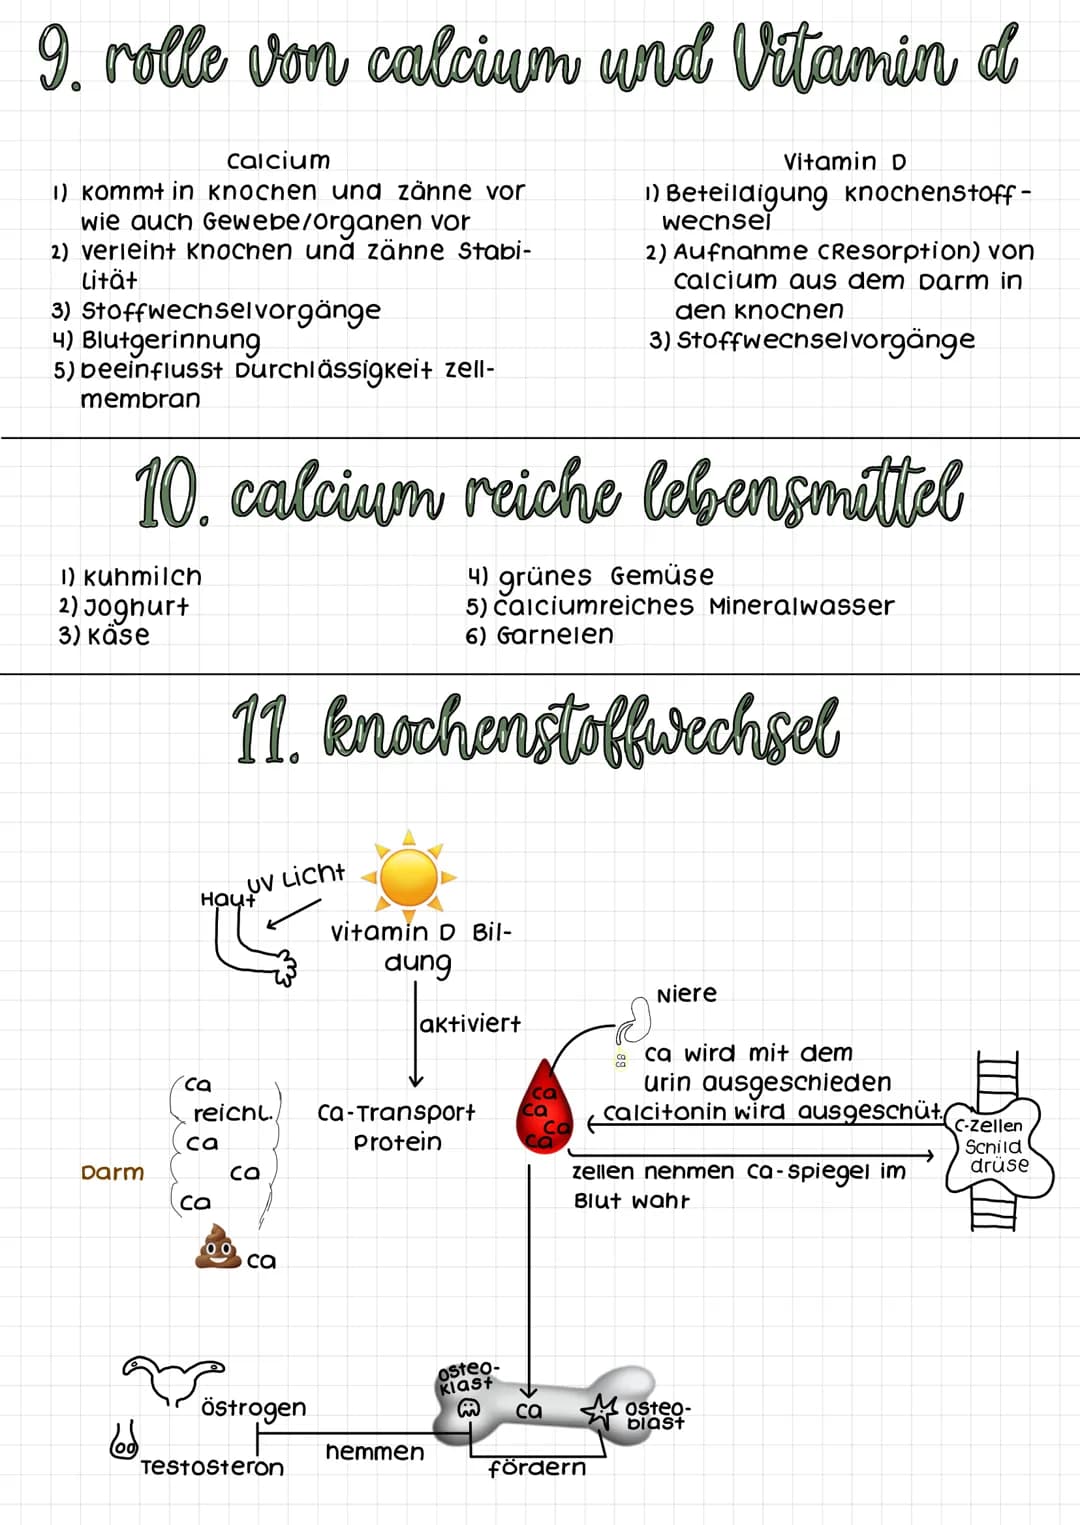 9. rolle von calcium und Vitamin d
Calcium
1) kommt in Knochen und zähne vor
wie auch Gewebe/Organen vor
2) verleiht Knochen und zähne Stabi-
lität
3) Stoffwechselvorgänge
4) Blutgerinnung
5) beeinflusst Durchlässigkeit zell-
membran
Vitamin D
1) Beteildigung knochenstoff-
wechsel
2) Aufnahme (Resorption) von
Calcium aus dem Darm in
den knochen
3) Stoffwechselvorgänge
10. calcium reiche lebensmittel
1) Kuhmilch
2) Joghurt
3) Käse
4) grünes Gemüse
5) calciumreiches Mineralwasser
6) Garnelen
11. knochenstoffwechsel
UV Licht
Haut
vitamin D Bil-
dung
aktiviert
Niere
ca
ca
ca wird mit dem
urin ausgeschieden
calcitonin wird ausgeschüt.
C-zellen
Schild
drüse
zellen nehmen ca-spiegel im
Blut wahr
ca
ca
ca
ca
Ca-Transport
Protein
ca
reichl.
ca
Darm
ca
ca
ca
osteo-
klast
ca
osteo-
blast
östrogen
hemmen
Testosteron
fördern